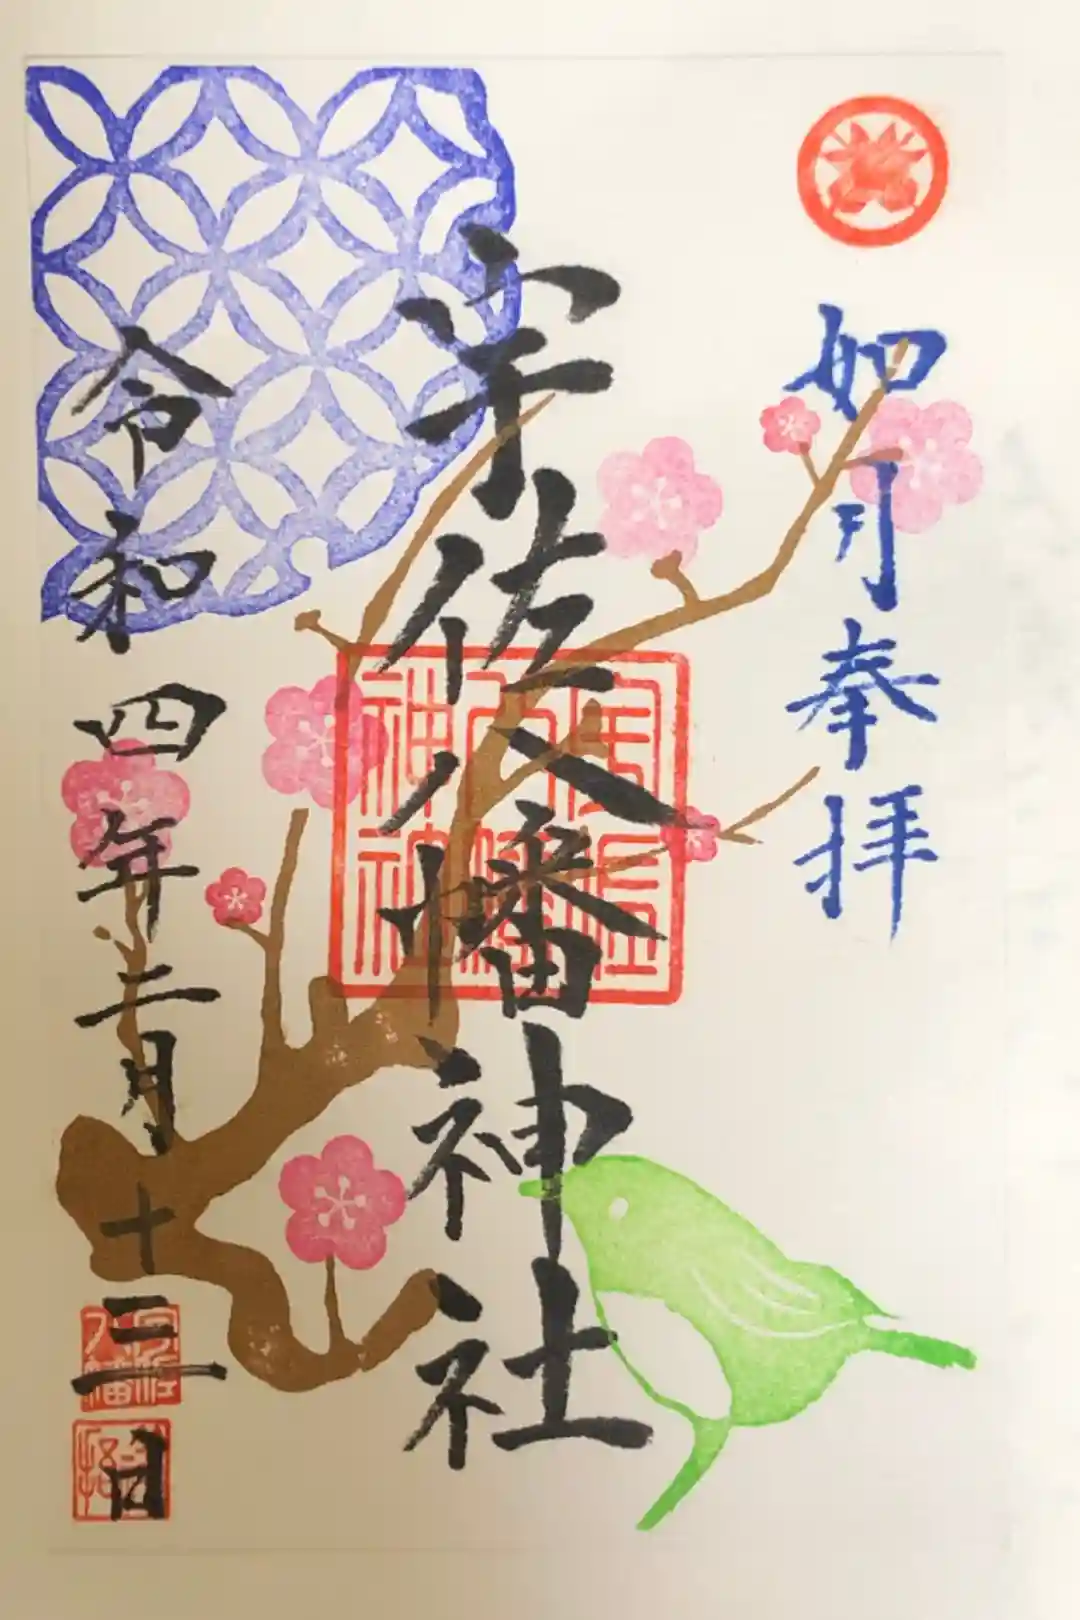 如月奉拝
宇佐八幡神社
令和四年二月十三日
宇佐
八幡
神社
宇佐
八幡